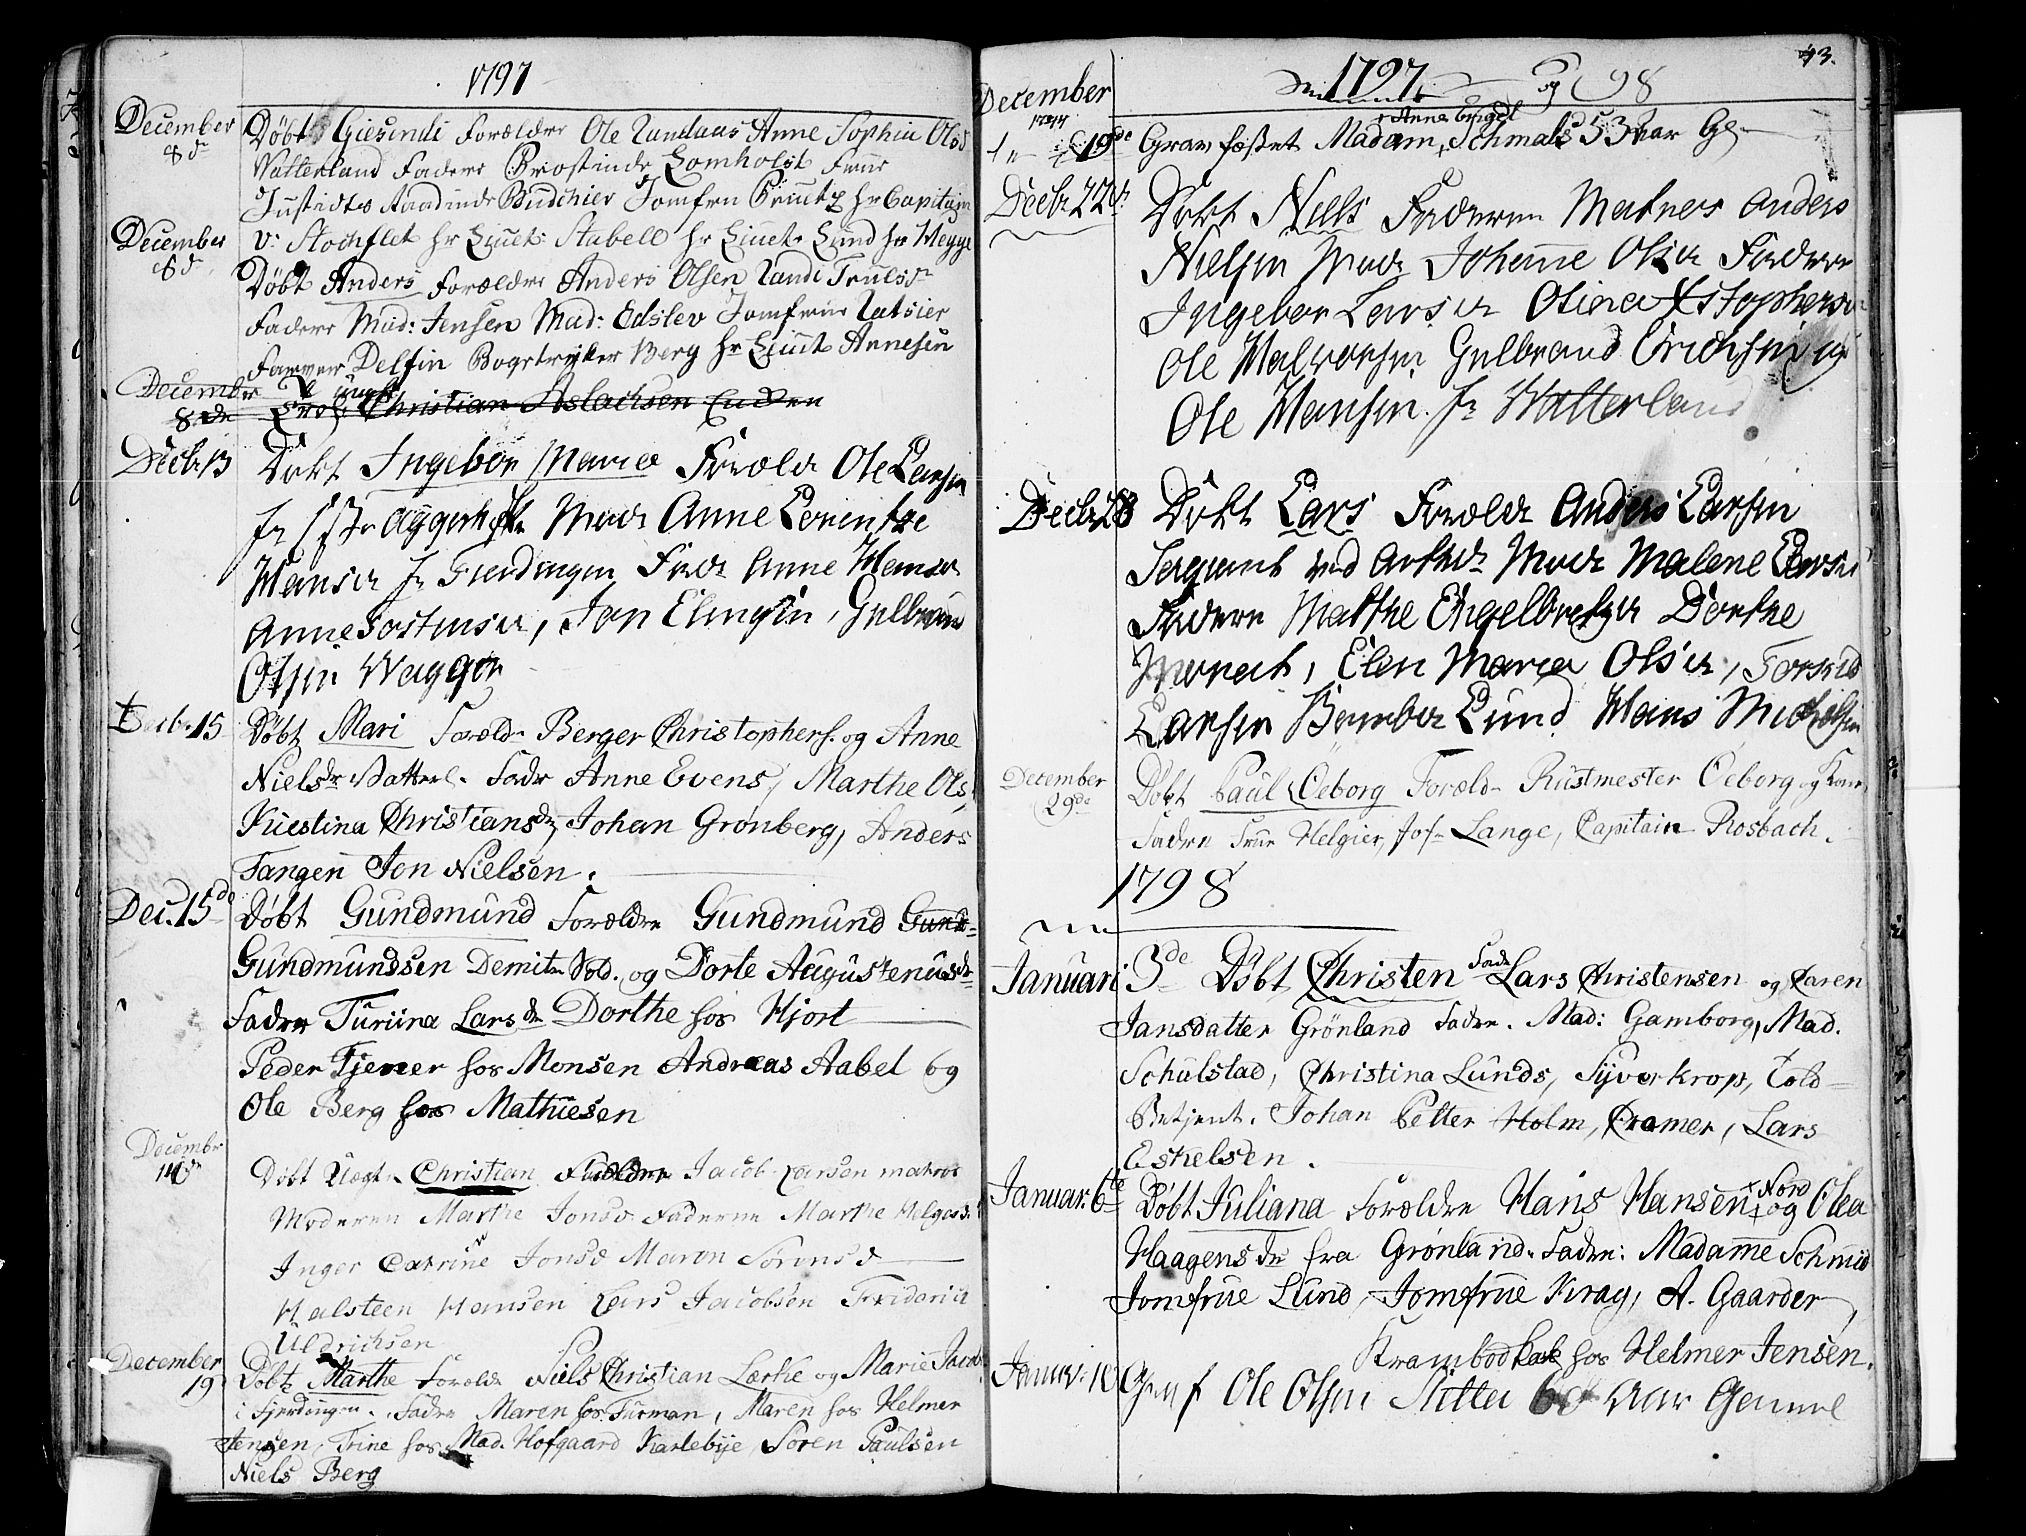 1797
December
8 d
Døbt Giesindi Forældre Ole Anne Sophia Olsd
Vatterland Faderne Lomholst
Jomfru hr Capitain
December
8 d
v: Stochflet hr Lieut: Stabell hr Lieut. Lund hr Wegge
Døbt Anders Forældre Anders Olsen Randi Truelsd
Faderne Mad: Jensen Mad: Edslev Jomfrue
Farver Delfin Bogtrykker Berg hr Lieut Annesen
December
8 de
Christian Aslachsen
Decbr 13
Døbt Ingebor Maria Forældr Ole Larsen
fr Mod Anne Lorentze
Hansd fr Fierdingen Fadr Anne Hansd
Anne Tostensd, Jon Elingsen, Gulbrand
Olsen Wagger
Decbr. 15
Døbt Mari Foreld. Berger Christophers. og Anne
Nielsdr. Vatterl. Fadr Anne Evens, Marthe Ols
Kiestina Christiansdr, Johan Grønberg, Anders
Tangen Jon Nielsen.
Dec. 15de
Døbt Gundmund Forældre Gundmund Gund-
Gundmundsen Demit. Sold. og Dorte Augustenusdr
Fadre Turiina Larsdr Dorthe hos Hjort
Peder Tjener hos Monsen Andreas Aabel og
Ole Berg hos Mathiesen
December
14de
Døbt Uægt. Christian Forældre Jacob Larsen matros
Moderen Marthe Jonsd. Faderne Marthe Helgesd.
Inger Catrine Jonsd Maren Sørensd
Halsteen Hansen Lars Jacobsen Friderich
Uldrichsen
December
19
Døbt Marthe Forældr Niels Christian Lærke og Marie Jacob
i Fjerdingen. Fadre Maren hos Furman, Maren hos Helmer
Jensen, Trine hos Mad. Hofgaard Karlebye, Søren Paulsen
Niels Berg
43.
1797 og 98
December
19de
Anna Birgel
Gravfæstet Madam Schmals 53 aar Gl
Decbr 22d
Døbt Niels Faderen Matros Anders
Nielsen Moder Johanne Olsd Fadere
Ingebor Larsd Olina Xstophersd
Ole Halvorsen Gulbrand Erichsen og
Ole Hansen fr Watterland
Decbr 28
Døbt Lars Forældr Anders Larsen
Sergiant ved Moder Malene Larsd
Fadere Marthe Engelbretsd Dorthe
Elen Maria Olsd,
Larsen Lund Hans Michelsen
December
29de
Døbt Paul Øeborg Foræld. Rustmester Øeborg og Kone
Fadre Frue Helgier, Jof. Lange, Capitain Rosbach.
1798
Januari 3de Døbt Christen Fadr Lars Christensen og Caren
Jansdatter Grönland Fadre. Mad: Gamborg, Mad.
Schulstad, Christina Lunds, Syver Krop, Told-
Betjent. Johan Petter Holm, Cramer, Lars
Eskelsen.
Januar. 6te Døbt Juliana Forældre Hans Hansen Nord og Olea
Haagensdr fra Grønland. Fadre: Madame Schmid
Jomfrue Lund, Jomfrue Krag, A. Gaarder,
Krambod hos Helmer Jensen.
Januar. 10 Grauf Ole Olsen Aar Gammel